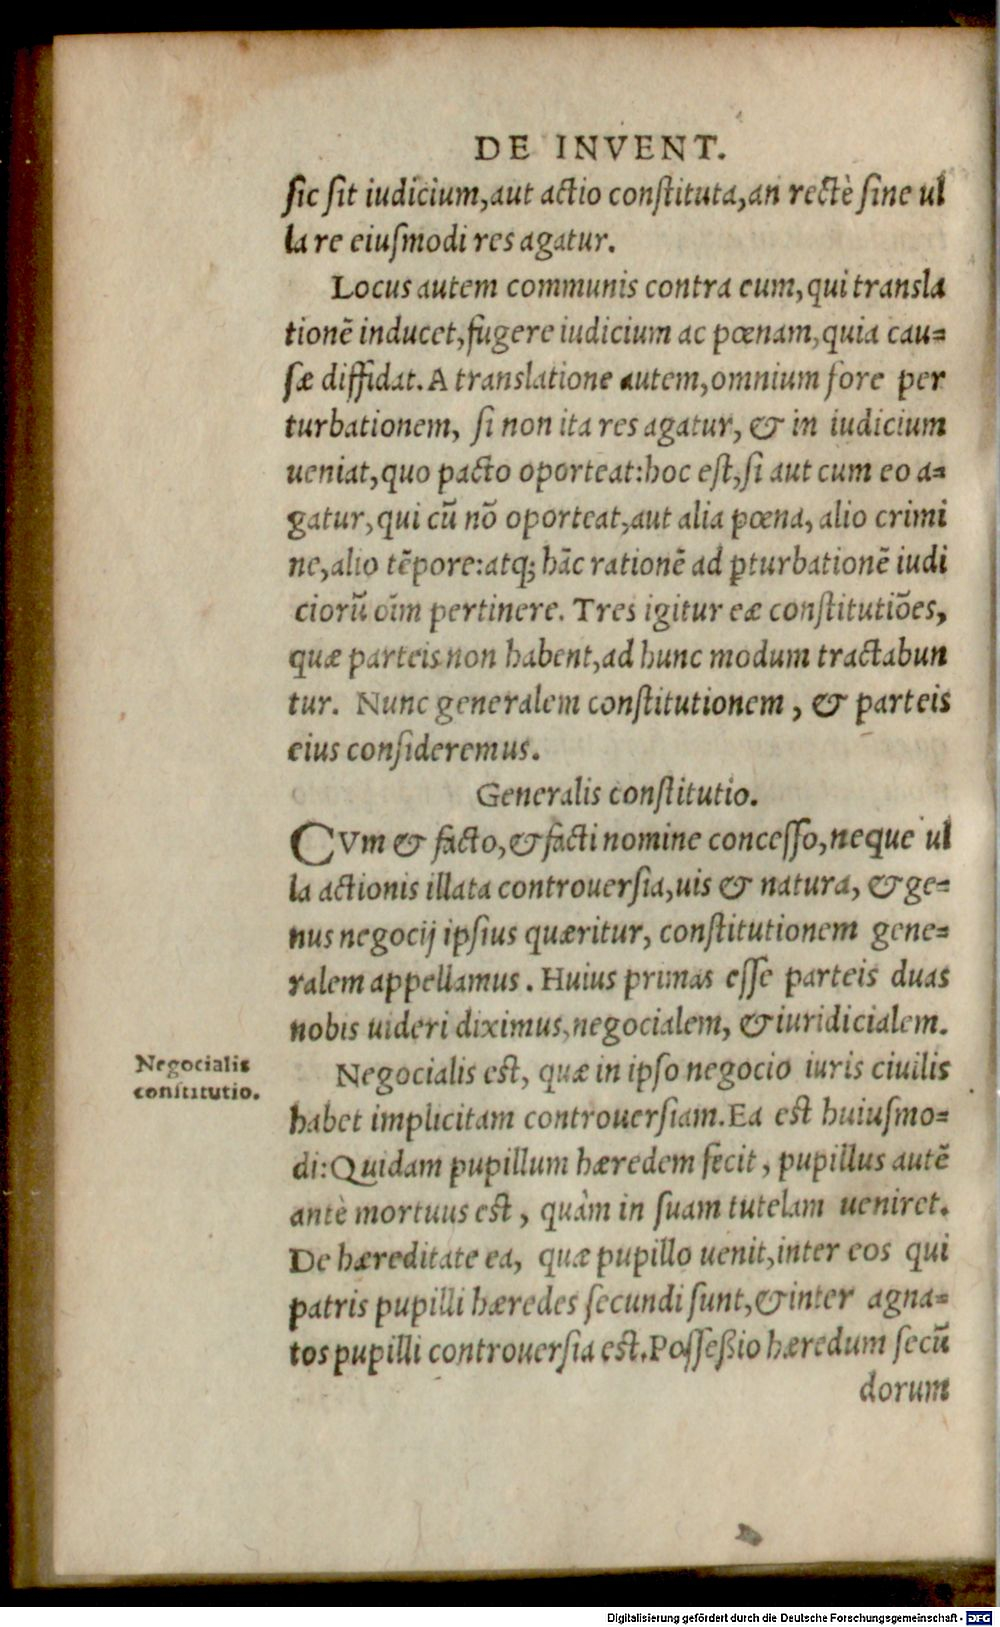 DE INVENT.
sic sit iudicium, aut actio constituta, an rectè sine ul
la re eiusmodi res agatur.
Locus autem communis contra eum, qui transla
tionẽ inducet, fugere iudicium ac pœnam, quia cau-
sæ diffidat. A translatione autem, omnium fore per
turbationem, si non ita res agatur, & in iudicium
ueniat, quo pacto oporteat: hoc est, si aut cum eo a-
gatur, qui cũ nõ oporteat, aut alia pœna, alio crimi
ne, alio tẽpore: atq; hãc rationẽ ad ꝑturbationẽ iudi
ciorũ oĩm pertinere. Tres igitur eæ constitutiões,
quæ parteis non habent, ad hunc modum tractabun
tur. Nunc generalem constitutionem, & parteis
eius consideremus.
Generalis constitutio.
CVm & facto, & facti nomine concesso, neque ul
la actionis illata controuersia, uis & natura, & ge-
nus negocij ipsius quæritur, constitutionem gene-
ralem appellamus. Huius primas esse parteis duas
nobis uideri diximus, negocialem, & iuridicialem.
Negocialis
constitutio.
Negocialis est, quæ in ipso negocio iuris ciuilis
habet implicitam controuersiam. Ea est huiusmo-
di: Quidam pupillum hæredem fecit, pupillus autẽ
antè mortuus est, quàm in suam tutelam ueniret.
De hæreditate ea, quæ pupillo uenit, inter eos qui
patris pupilli hæredes secundi sunt, & inter agna-
tos pupilli controuersia est. Posseßio hæredum secũ
dorum
Digitalisierung gefördert durch die Deutsche Forschungsgemeinschaft - DFG